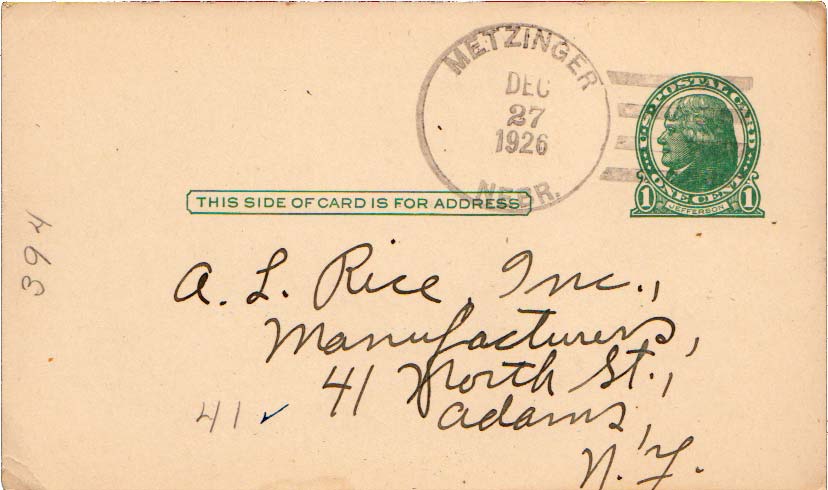 METZINGER
DEC
27
1926
NEBR.
U.S. POSTAL CARD
1 ONE CENT 1
JEFFERSON
THIS SIDE OF CARD IS FOR ADDRESS
394
A. L. Rice, Inc.,
Manufacturers,
41 North St.,
41 ✓
Adams,
N.Y.